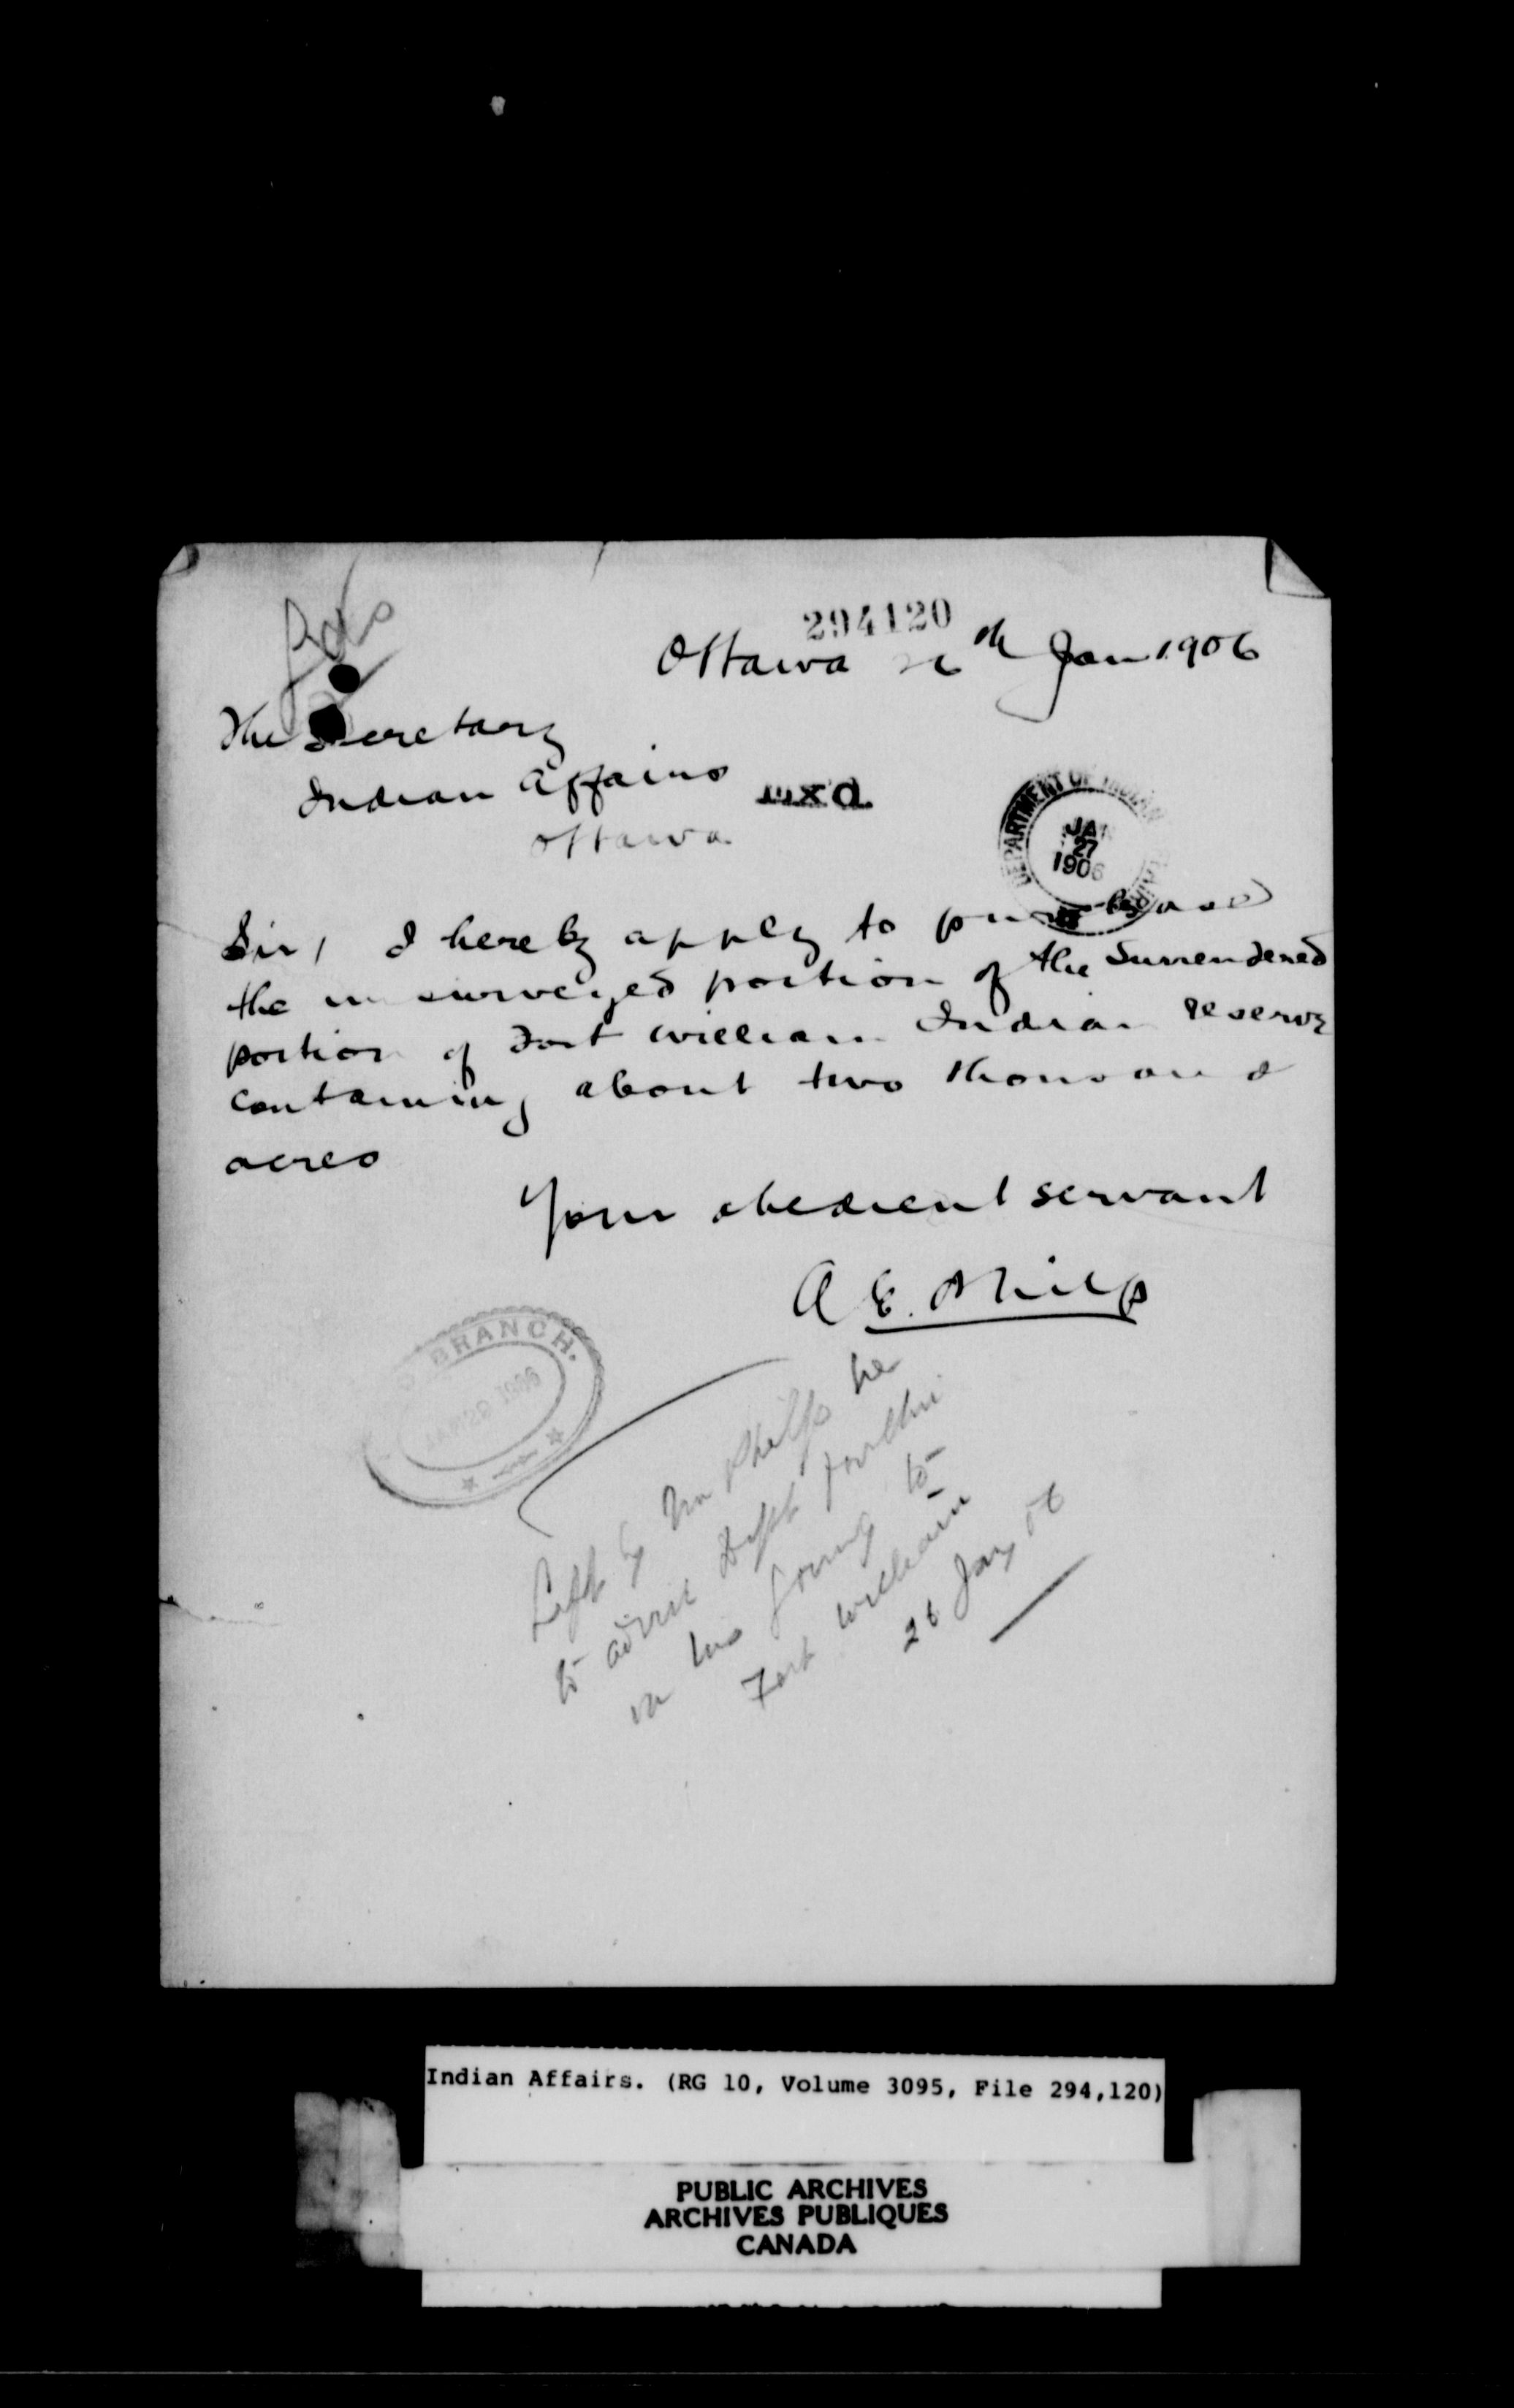 294120
Ottawa 26th Jan 1906
The Secretary
Indian Affairs
Ottawa
DEPARTMENT OF INDIAN
JAN
27
1906
Sir, I hereby apply to purchase
the unsurveyed portion of the Surrendered
portion of Fort William Indian reserve
containing about two thousand
acres
Your obedient servant
A E. Philp
BRANCH.
JAN 29 1906
Left by Mr Philp he
to advise Dept further
on his going to
Fort William
26 Jany 06
Indian Affairs. (RG 10, Volume 3095, File 294,120)
PUBLIC ARCHIVES
ARCHIVES PUBLIQUES
CANADA